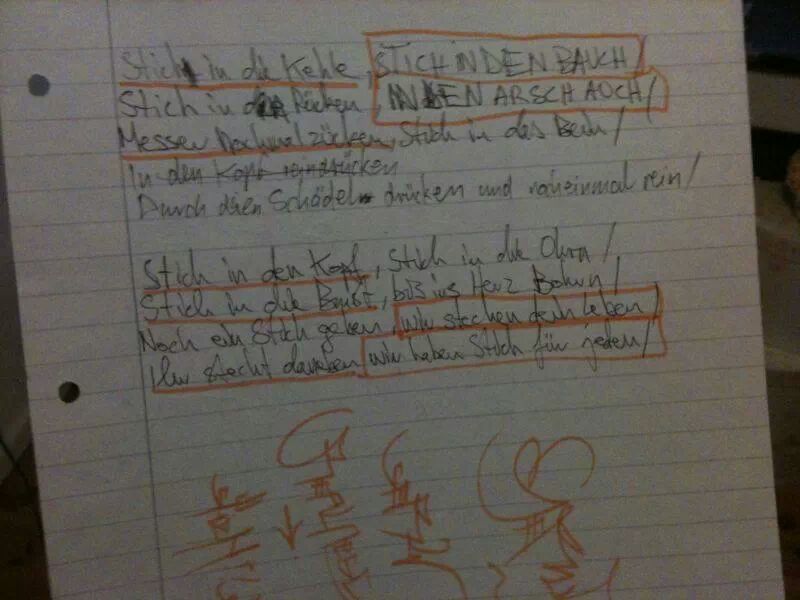 Stich in die Kehle, STICH IN DEN BAUCH/
Stich in den Rücken, IN DEN ARSCH AUCH/
Messer nochmal zücken, Stich in das Bein/
In den Kopf reindrücken
Durch den Schädel drücken und nocheinmal rein/
Stich in den Kopf, Stich in die Ohren/
Stich in die Brust, bis ins Herz Bohren/
Noch ein Stich geben, wir stechen dein Leben/
Ihr stecht daneben wir haben Stich für jeden/